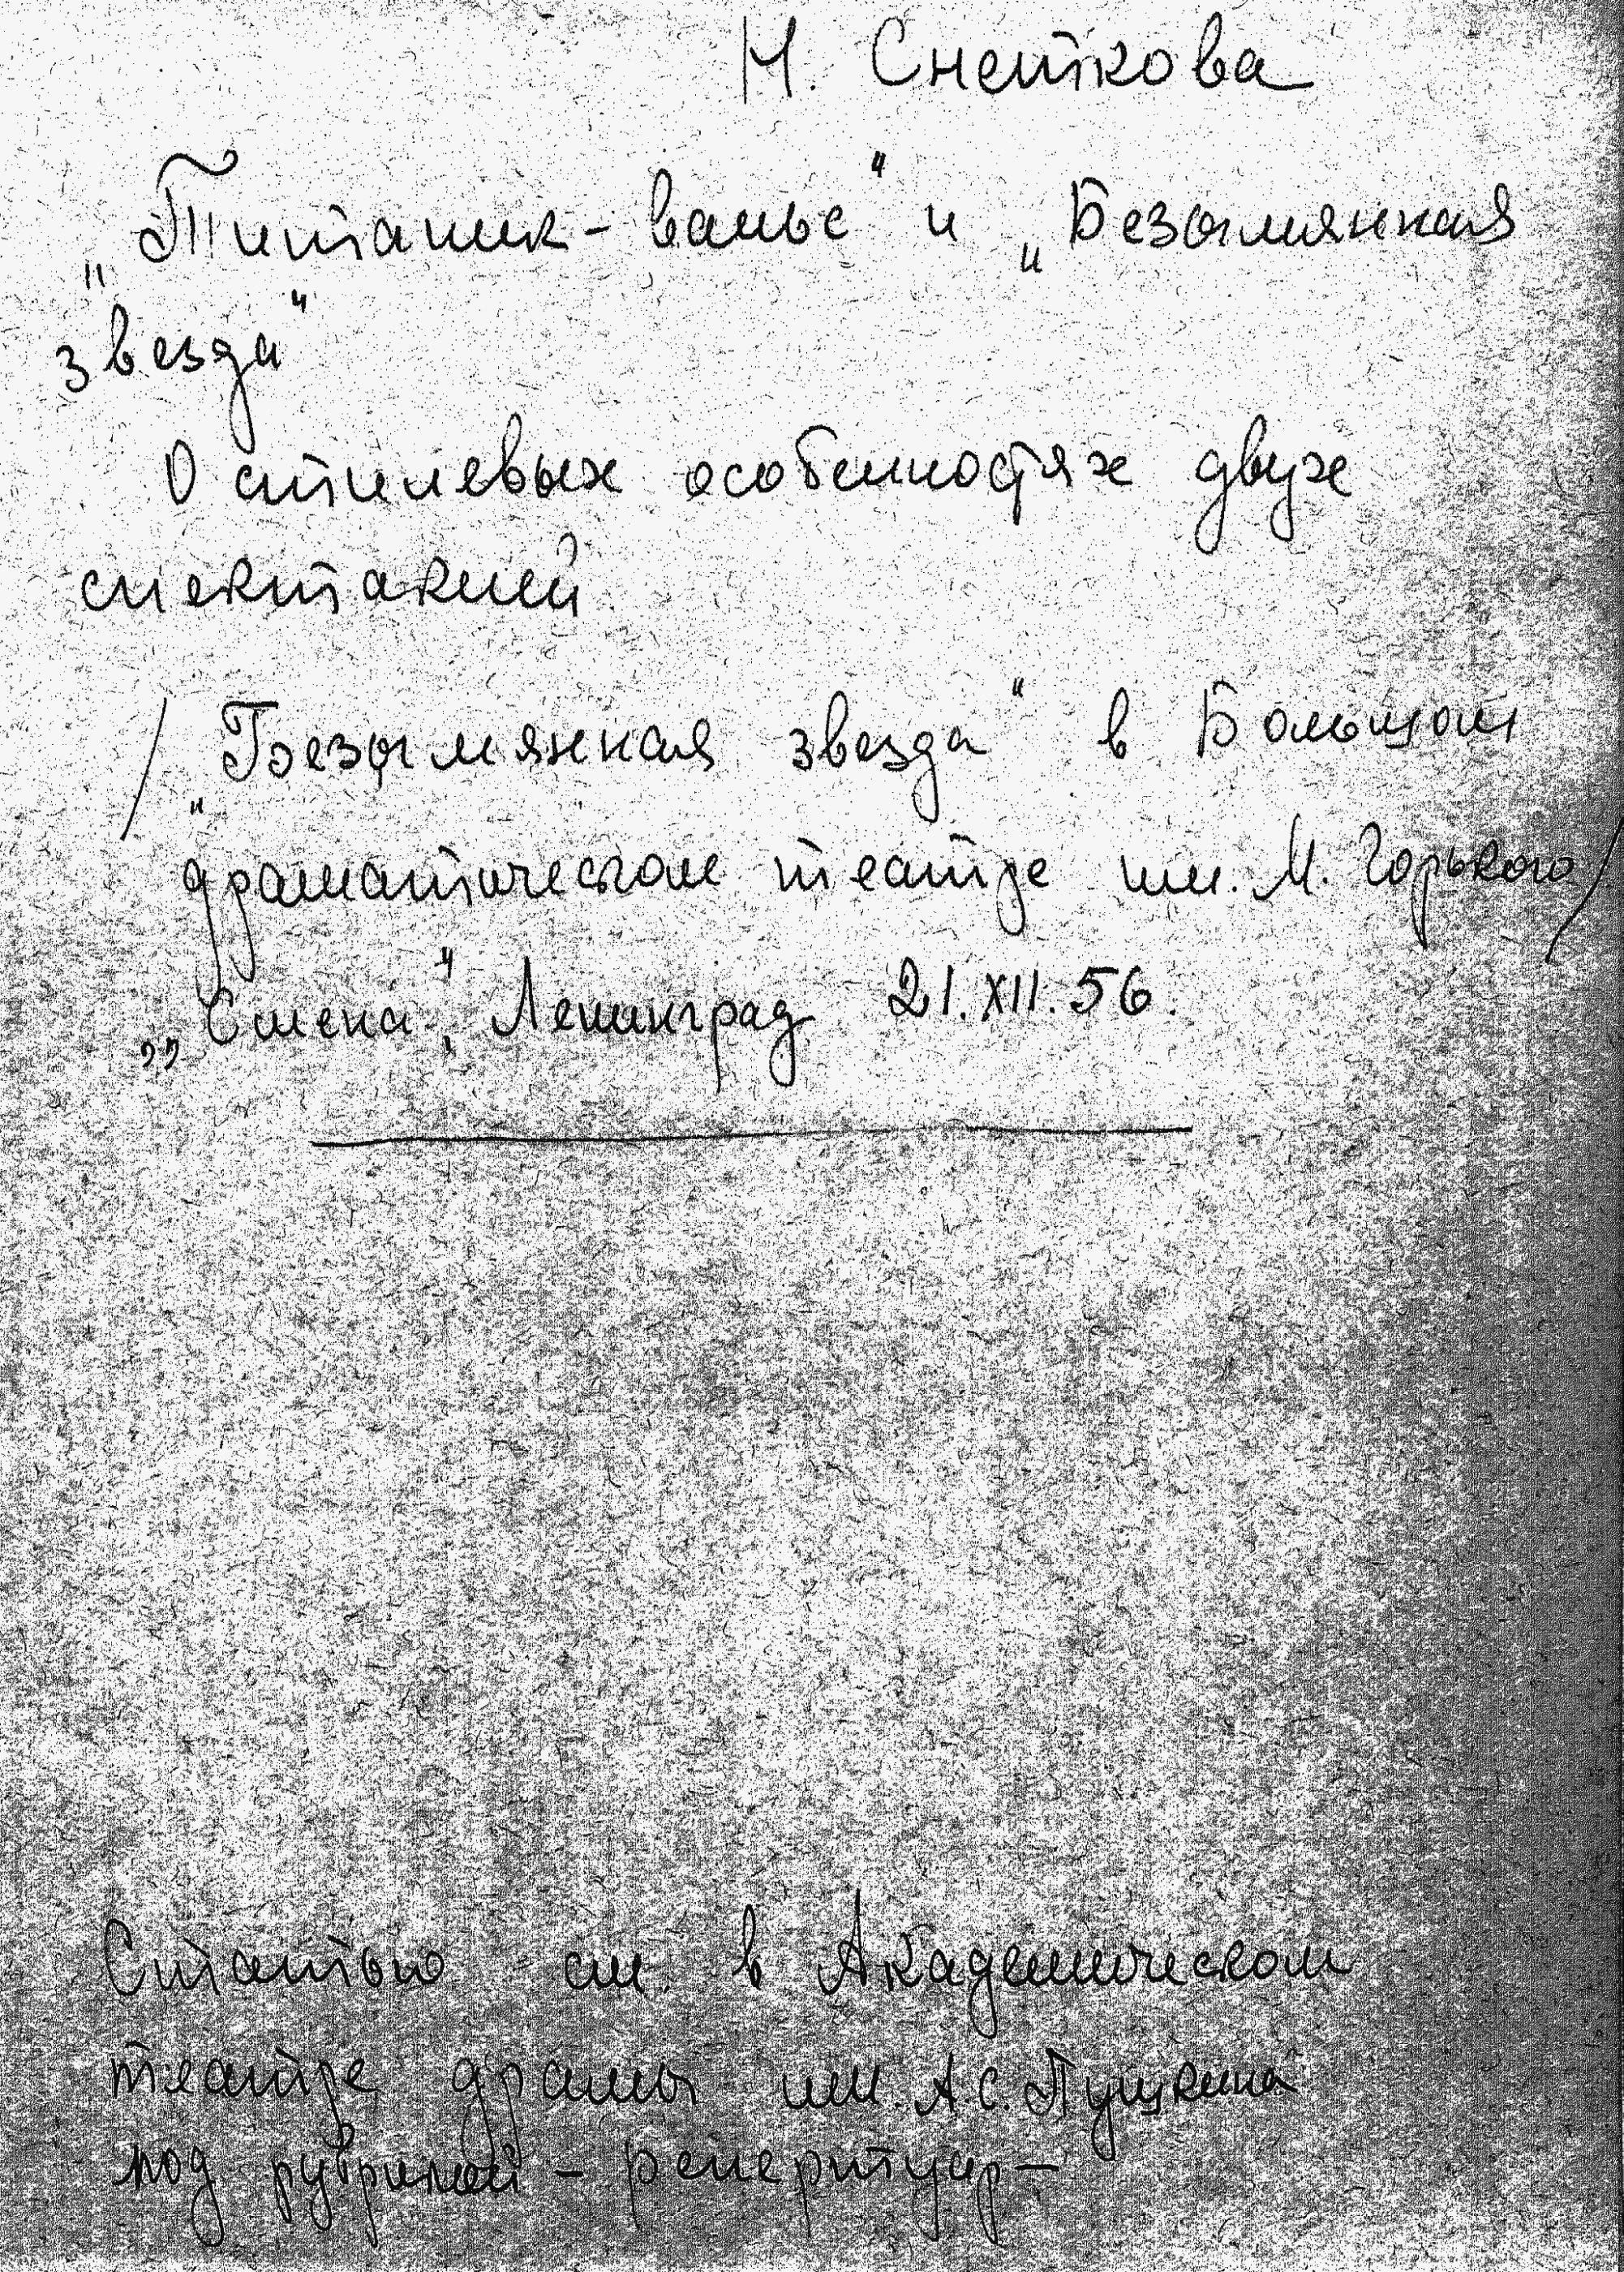 Н. Снеткова
„Титаник-вальс“ и „Безымянная
звезда“
О стилевых особенностях двух
спектаклей
/„Безымянная звезда“ в Большом
драматическом театре им. М. Горького/
„Смена“, Ленинград 21.XII.56.
Статью см. в Академическом
театре драмы им. А.С. Пушкина
под рубрикой – репертуар –